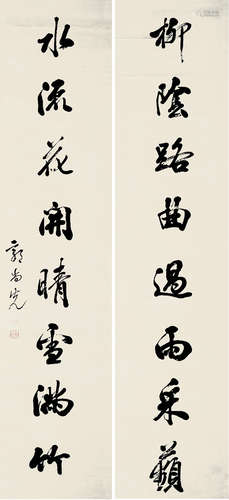 柳陰路曲過雨采蘋
水流花開晴雪滿竹
郭尚先